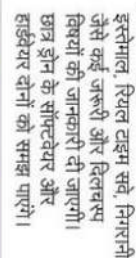 इस्तेमाल, रियल टाइम सर्वे, निगरानी
जैसे कई जरूरी और दिलचस्प
विषयों की जानकारी दी जाएगी।
छात्र ड्रोन के सॉफ्टवेयर और
हार्डवेयर दोनों को समझ पाएंगे।